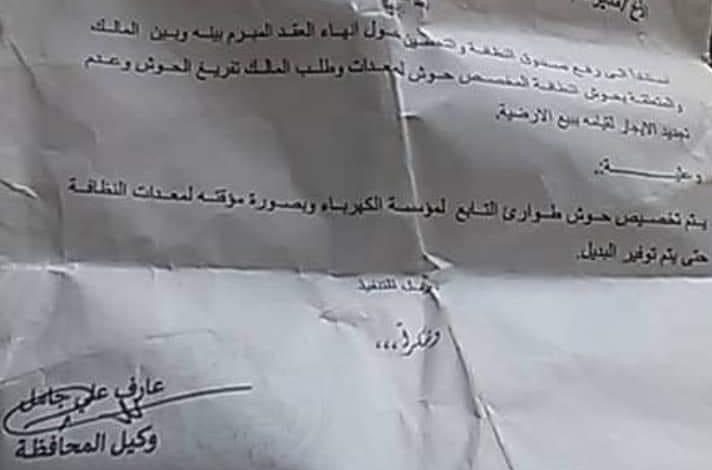 الأخ / مدير
استناداً الى رفع صندوق النظافة والتحسين حول انهاء العقد المبرم بينه وبين المالك
والمتعلقة بحوش النظافة المخصص حوش لمعدات وطلب المالك تفريغ الحوش وعدم
تجديد الايجار لقيامه ببيع الارضية.
وعليـــــــه:.
يتم تخصيص حوش طوارئ التابع لمؤسسة الكهرباء وبصورة مؤقته لمعدات النظافة
حتى يتم توفير البديل.
للتنفيذ
وشكراً،،،
عارف علي
وكيل المحافظة